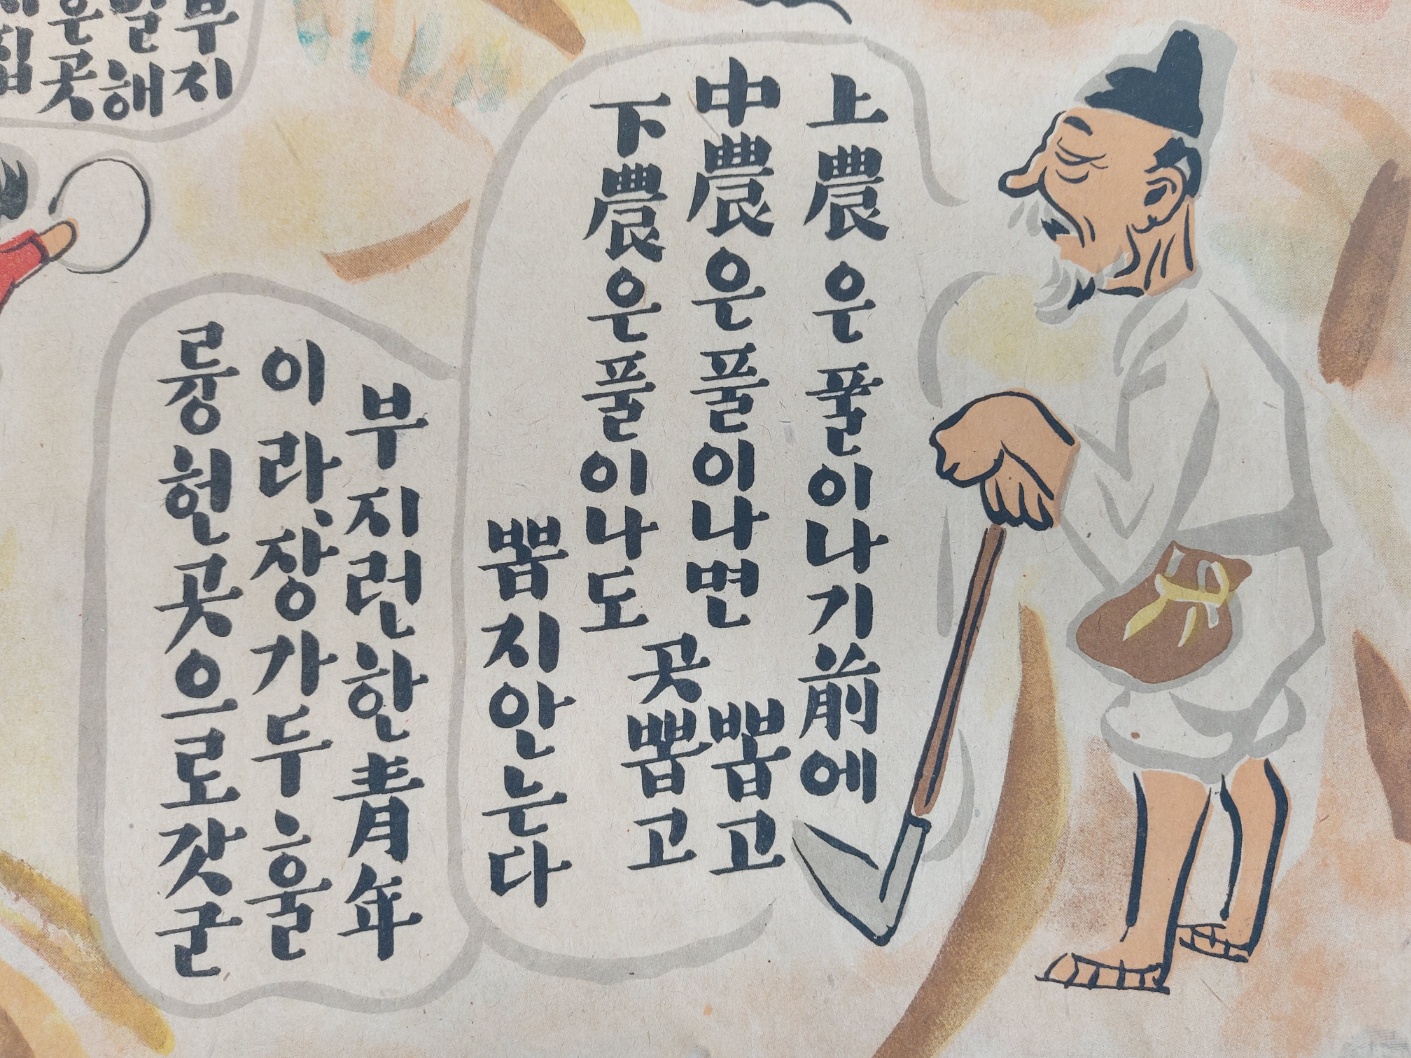 上農은풀이나기前에
뽑고
中農은풀이나면
곳뽑고
下農은풀이나도
뽑지안는다
부지런한青年
이라、장가두훌
륭헌곳으로갓군
부지
해
은곳